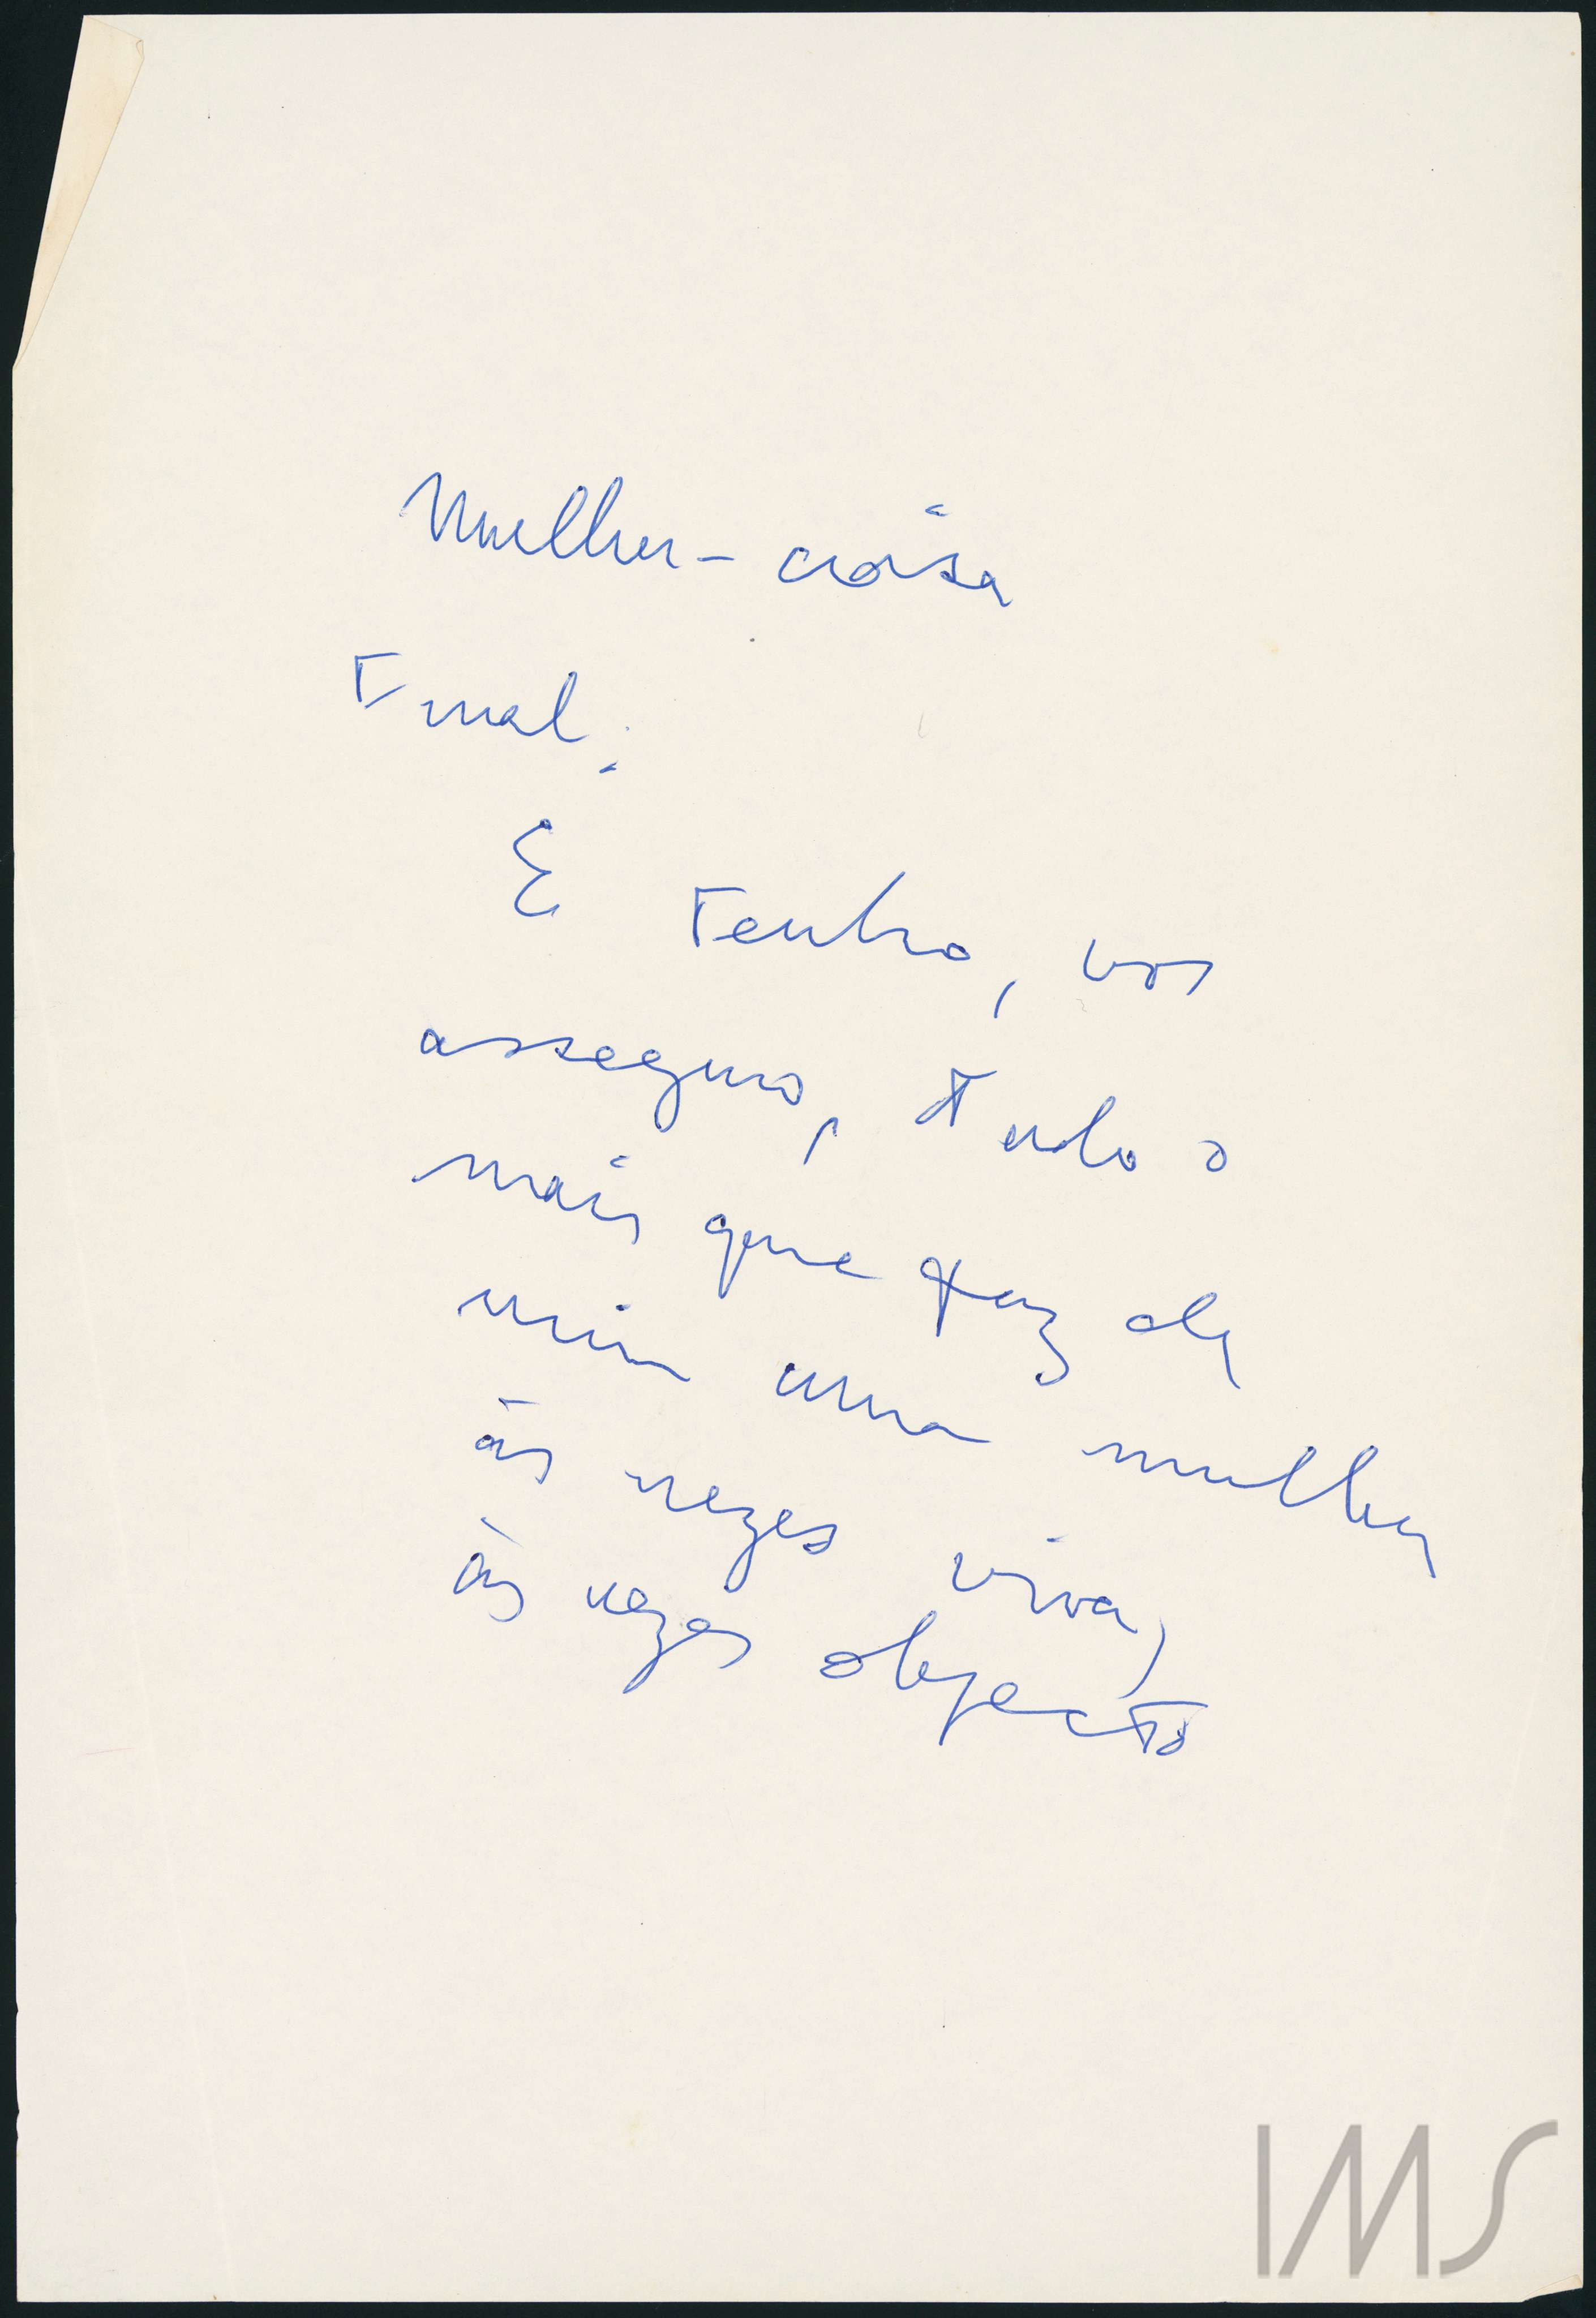 Mulher-coisa
Final:
E tenho, vos
asseguro, tudo o
mais que faz de
mim uma mulher
às vezes viva,
às vezes objecto
IMS